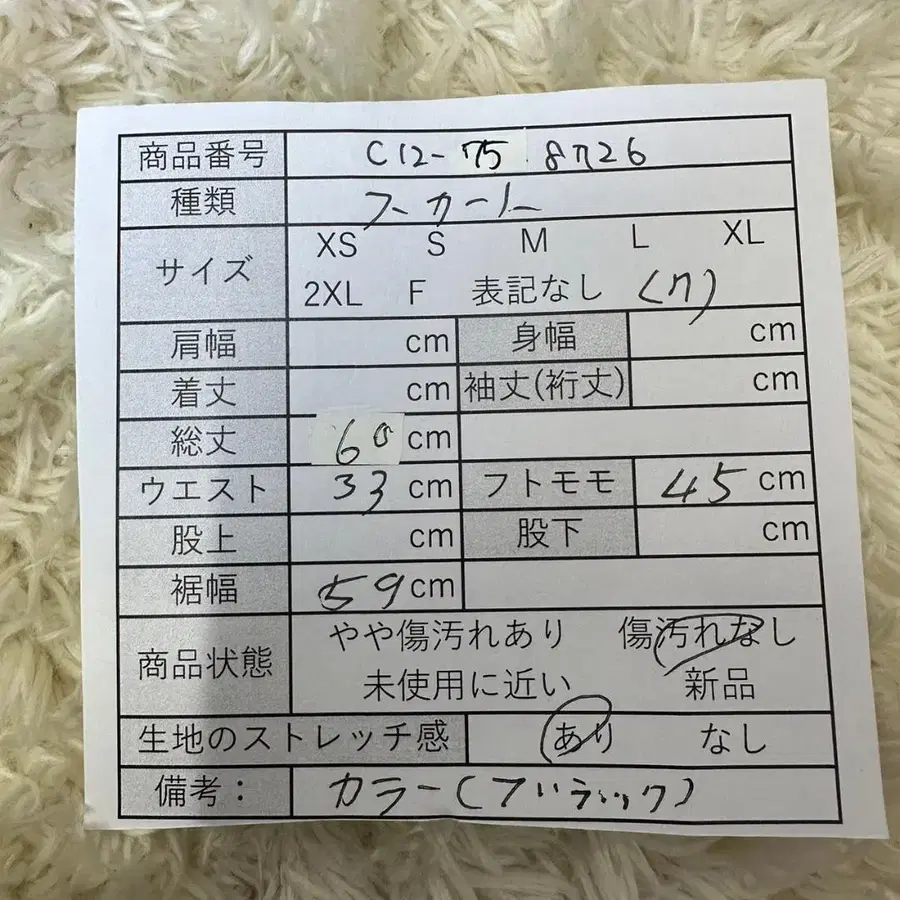 商品番号 C12-75 8726
種類 スカート
サイズ XS S M L XL
2XL F 表記なし (7)
肩幅 cm 身幅 cm
着丈 cm 袖丈(裄丈) cm
総丈 60 cm
ウエスト 33 cm フトモモ 45 cm
股上 cm 股下 cm
裾幅 59 cm
商品状態 やや傷汚れあり 傷汚れなし
未使用に近い 新品
生地のストレッチ感 あり なし
備考： カラー(ブラック)